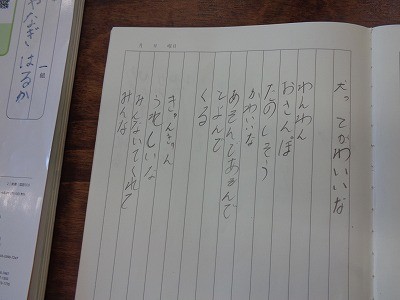 犬ってかわいいな
わんわん
おさんぽ
たのしそう
かわいいな
あそんであそんで
とよんで
くる
きゃんきゃん
うれしいな
みんないてくれて
みんな
月 日 曜日
一組
やなぎはるか